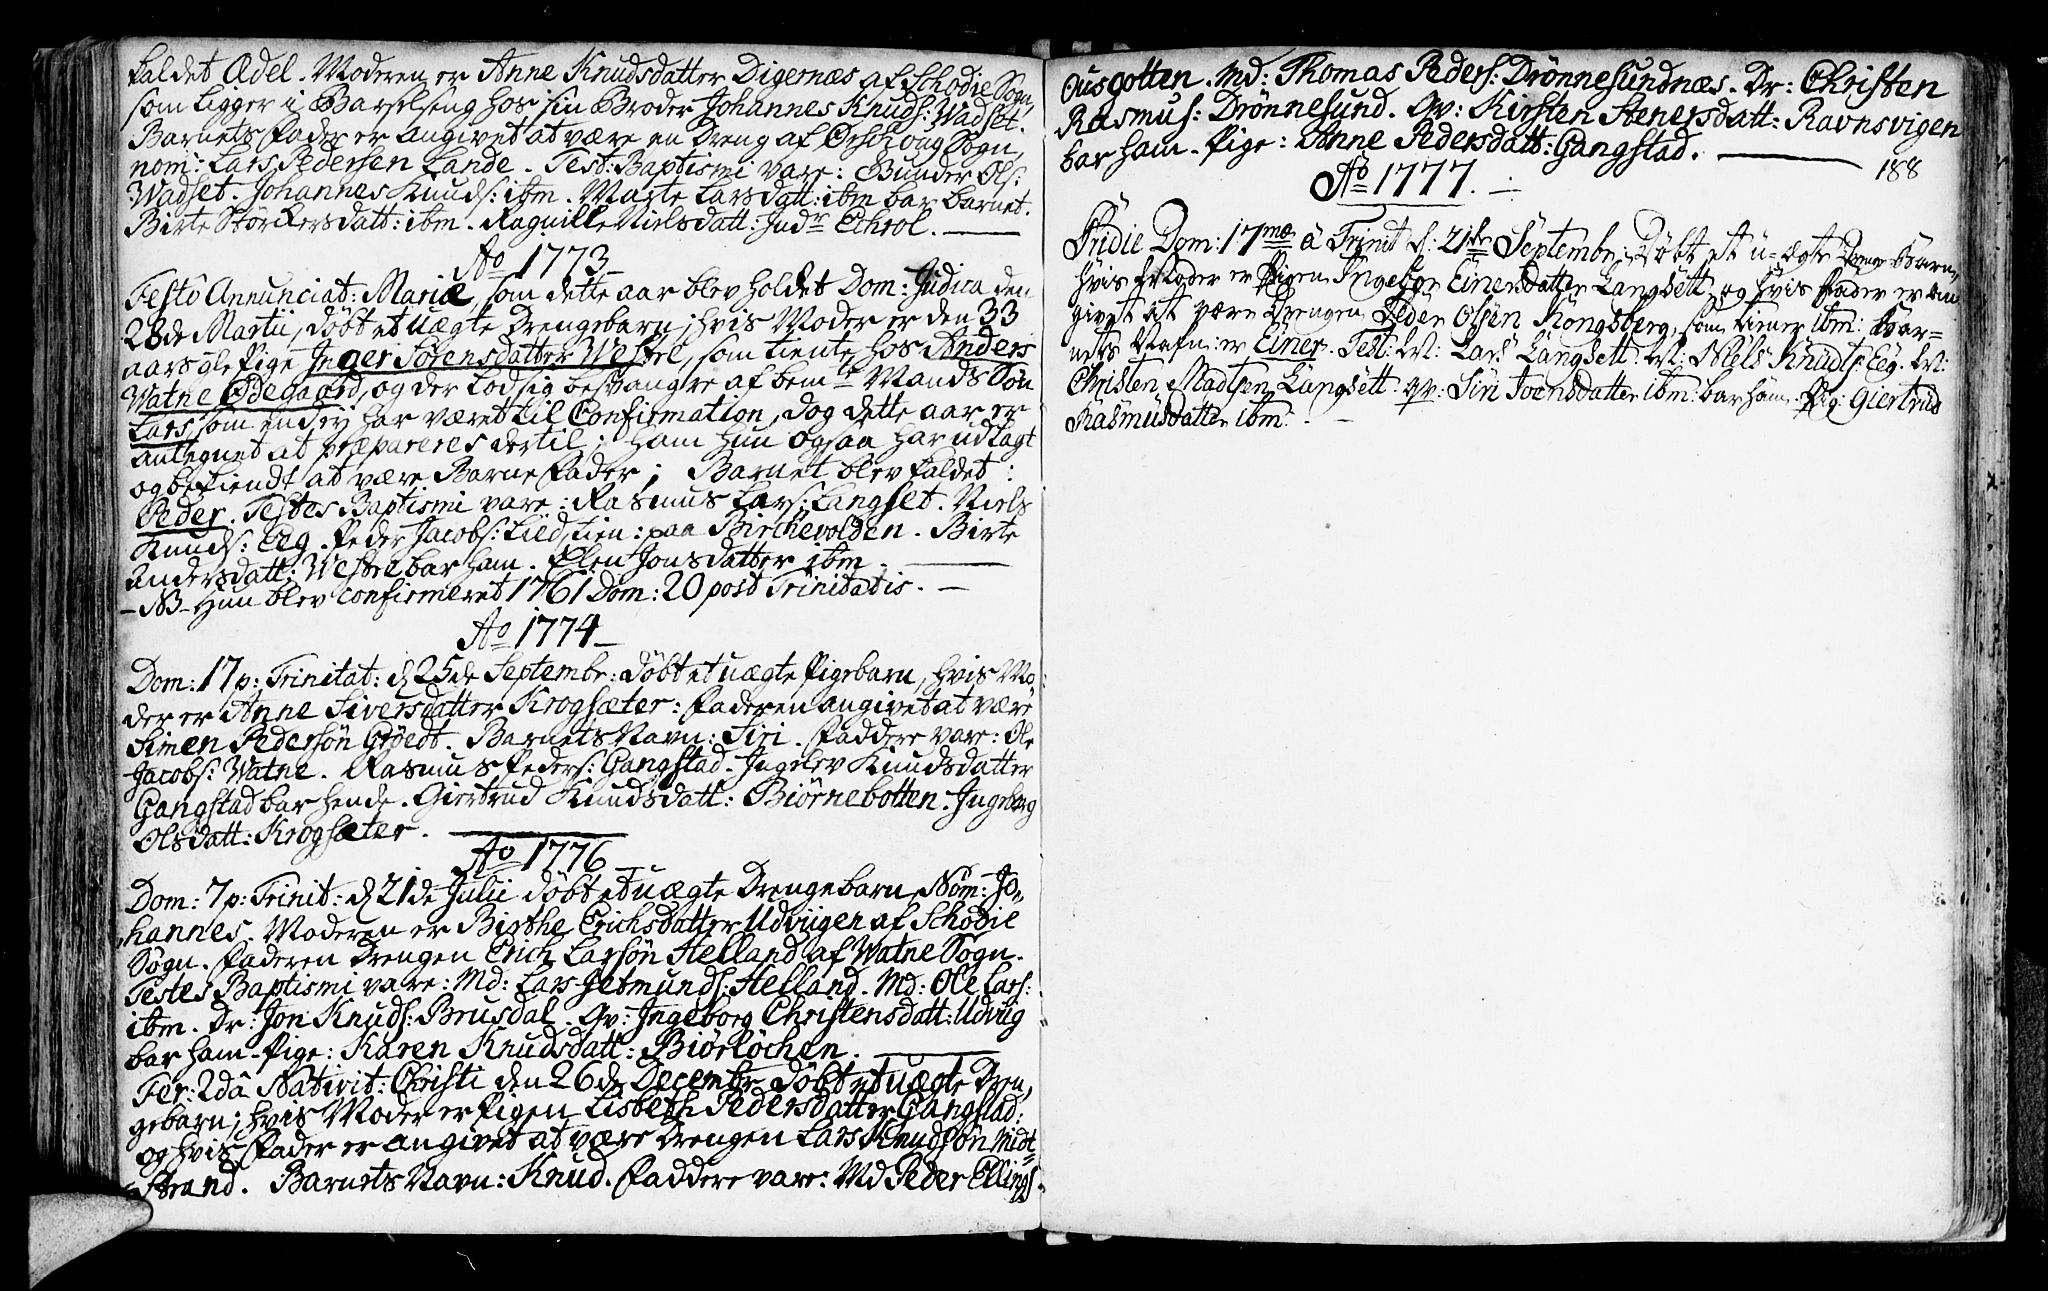 kaldet Ædel. Moderen er Anne Knudsdatter Digernæs af Schodie Sogn,
som ligger i Barselseng hos sin Broder Johannes Knuds: Wadset.
Barnets Fader er angivet at være en Dreng af Ørschoug Sogn,
nom: Lars Pedersen Lande. Test: Baptismi vare: Gunder Ols:
Wadset. Johannes Knuds: ibm. Marte Larsdatt: ibm bar barnet.
Birte Storckersdatt: ibm. Ragnille Nielsdatt: Indr Echrol.
Ao 1773
Festo Annunciat: Mariæ, som dette aar blev holdet Dom: Judica den
28de Martii, döbt et uægte Drengebarn; hvis Moder er den 33
aars gle Pige Inger Sørensdatter Westre, som tiente hos Anders
Watne Ødegaard, og der lod sig besvangre af bemte Mands Sön
Lars som end ej har været til Confirmation, dog dette aar er
antegnet at præpareres dertil; ham hun ogsaa har udlagt
og bekiendt at være Barne Fader; Barnet blev kaldet:
Peder. Testes Baptismi vare: Rasmus Lars: Langset. Niels
Knuds: Eeg. Peder Jacobs: Lied, tien: paa Birchevolden. Birte
Andersdatt: Westre bar ham. Elen Jonsdatter ibm.
- NB - Hun blev confirmeret 1761 Dom: 20 post Trinitatis.
Ao 1774
Dom: 17 p: Trinitat: d 25de Septembr: döbt et uægte Pigebarn, hvis Mo:
der er Anne Siversdatter Krogsæter: Faderen angivet at være
Simen Pedersön Grøedt. Barnets Navn: Siri. Faddere vare: Ole
Jacobs: Watne. Rasmus Peders: Gangstad. Ingelev Knudsdatter
Gangstad bar hende. Giertrud Knudsdatt: Biørnebotten. Ingeborg
Olsdatt: Krogsæter.
Ao 1776
Dom: 7 p: Trinit: d 21de Julii döbt et uægte Drengebarn, Nom: Jo-
hannes. Moderen er Birthe Erichsdatter Udviigen af Schodie
Sogn. Faderen Drengen Erich Larsön Helland af Watne Sogn.
Testes Baptismi vare: Md: Lars Jetmunds: Helland. Md: Ole Lars:
ibm. Dr: Jon Knuds: Brusdal. Qv: Ingeborg Christensdatt: Udviig
bar ham. Pige: Karen Knudsdatt: Biørløchen.
Fer: 2da Nativit: Christi den 26de Decembr döbt et uægte Dren,
gebarn; hvis Moder er Pigen Lisbeth Pedersdatter Gangstad:
og hvis Fader er angivet at være Drengen Lars Knudsön Midt=
Strand. Barnets Navn: Knud. Faddere vare: Md Peder Ellings:
Ousgotten. Md: Thomas Peders: Drönnesundnæs. Dr: Christen
Rasmus: Drönnesund. Qv: Kirsten Stenersdatt: Ravnsvigen
bar ham. Pige: Anne Pedersdatt: Gangstad.
188
Ao 1777.
Pridie Dom: 17mæ à Trinit d: 21de Septembr: Döbt et u-ægte Drenge Barn,
hvis Moder er Pigen Ingebor Einersdatter Langsett, og hvis Fader er an
givet at være Drengen Peder Olsen Kongsberg, som tiener ibm: Bar=
nets Nafn: er Einer. Test: M: Lars Langsett. M: Niels Knuds: Eeg. M:
Christen Madtsen Langsett. qv: Siri Joensdatter ibm: bar ham. Pig: Giertrud
Rasmusdatter ibm.